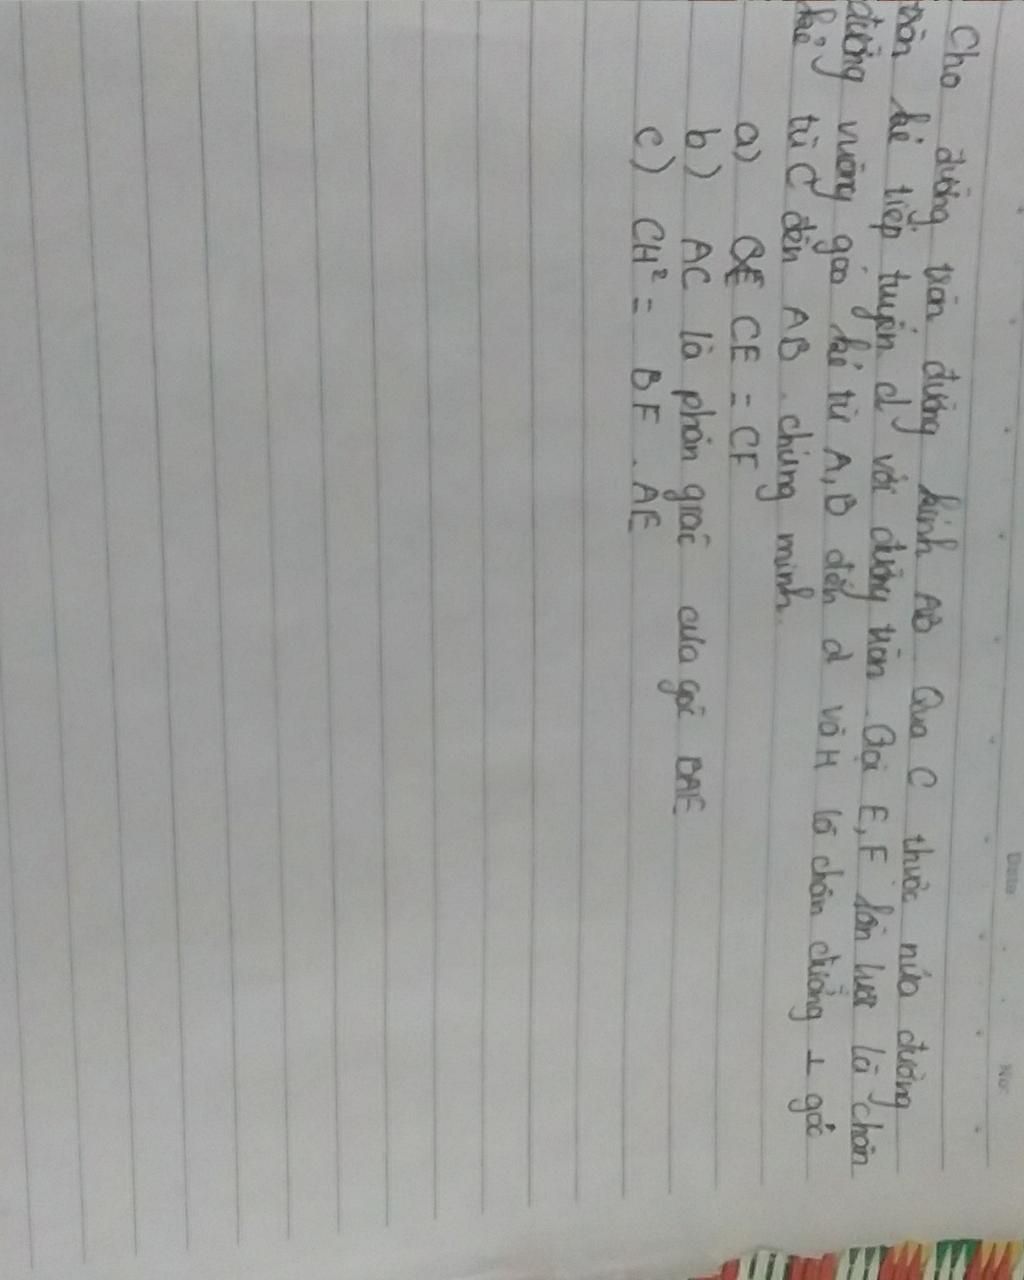 Date
No:
Cho đường tròn đường kính AB Qua C thuộc nửa đường
tròn kẻ tiếp tuyến d với đường tròn. Gọi E, F lần lượt là chân
đường vuông góc kẻ từ A, B đến d và H là chân đường ⊥ góc
kẻ từ C đến AB. chứng minh.
a) CE = CF
b) AC là phân giác của góc BAE
c) CH² = BF . AE